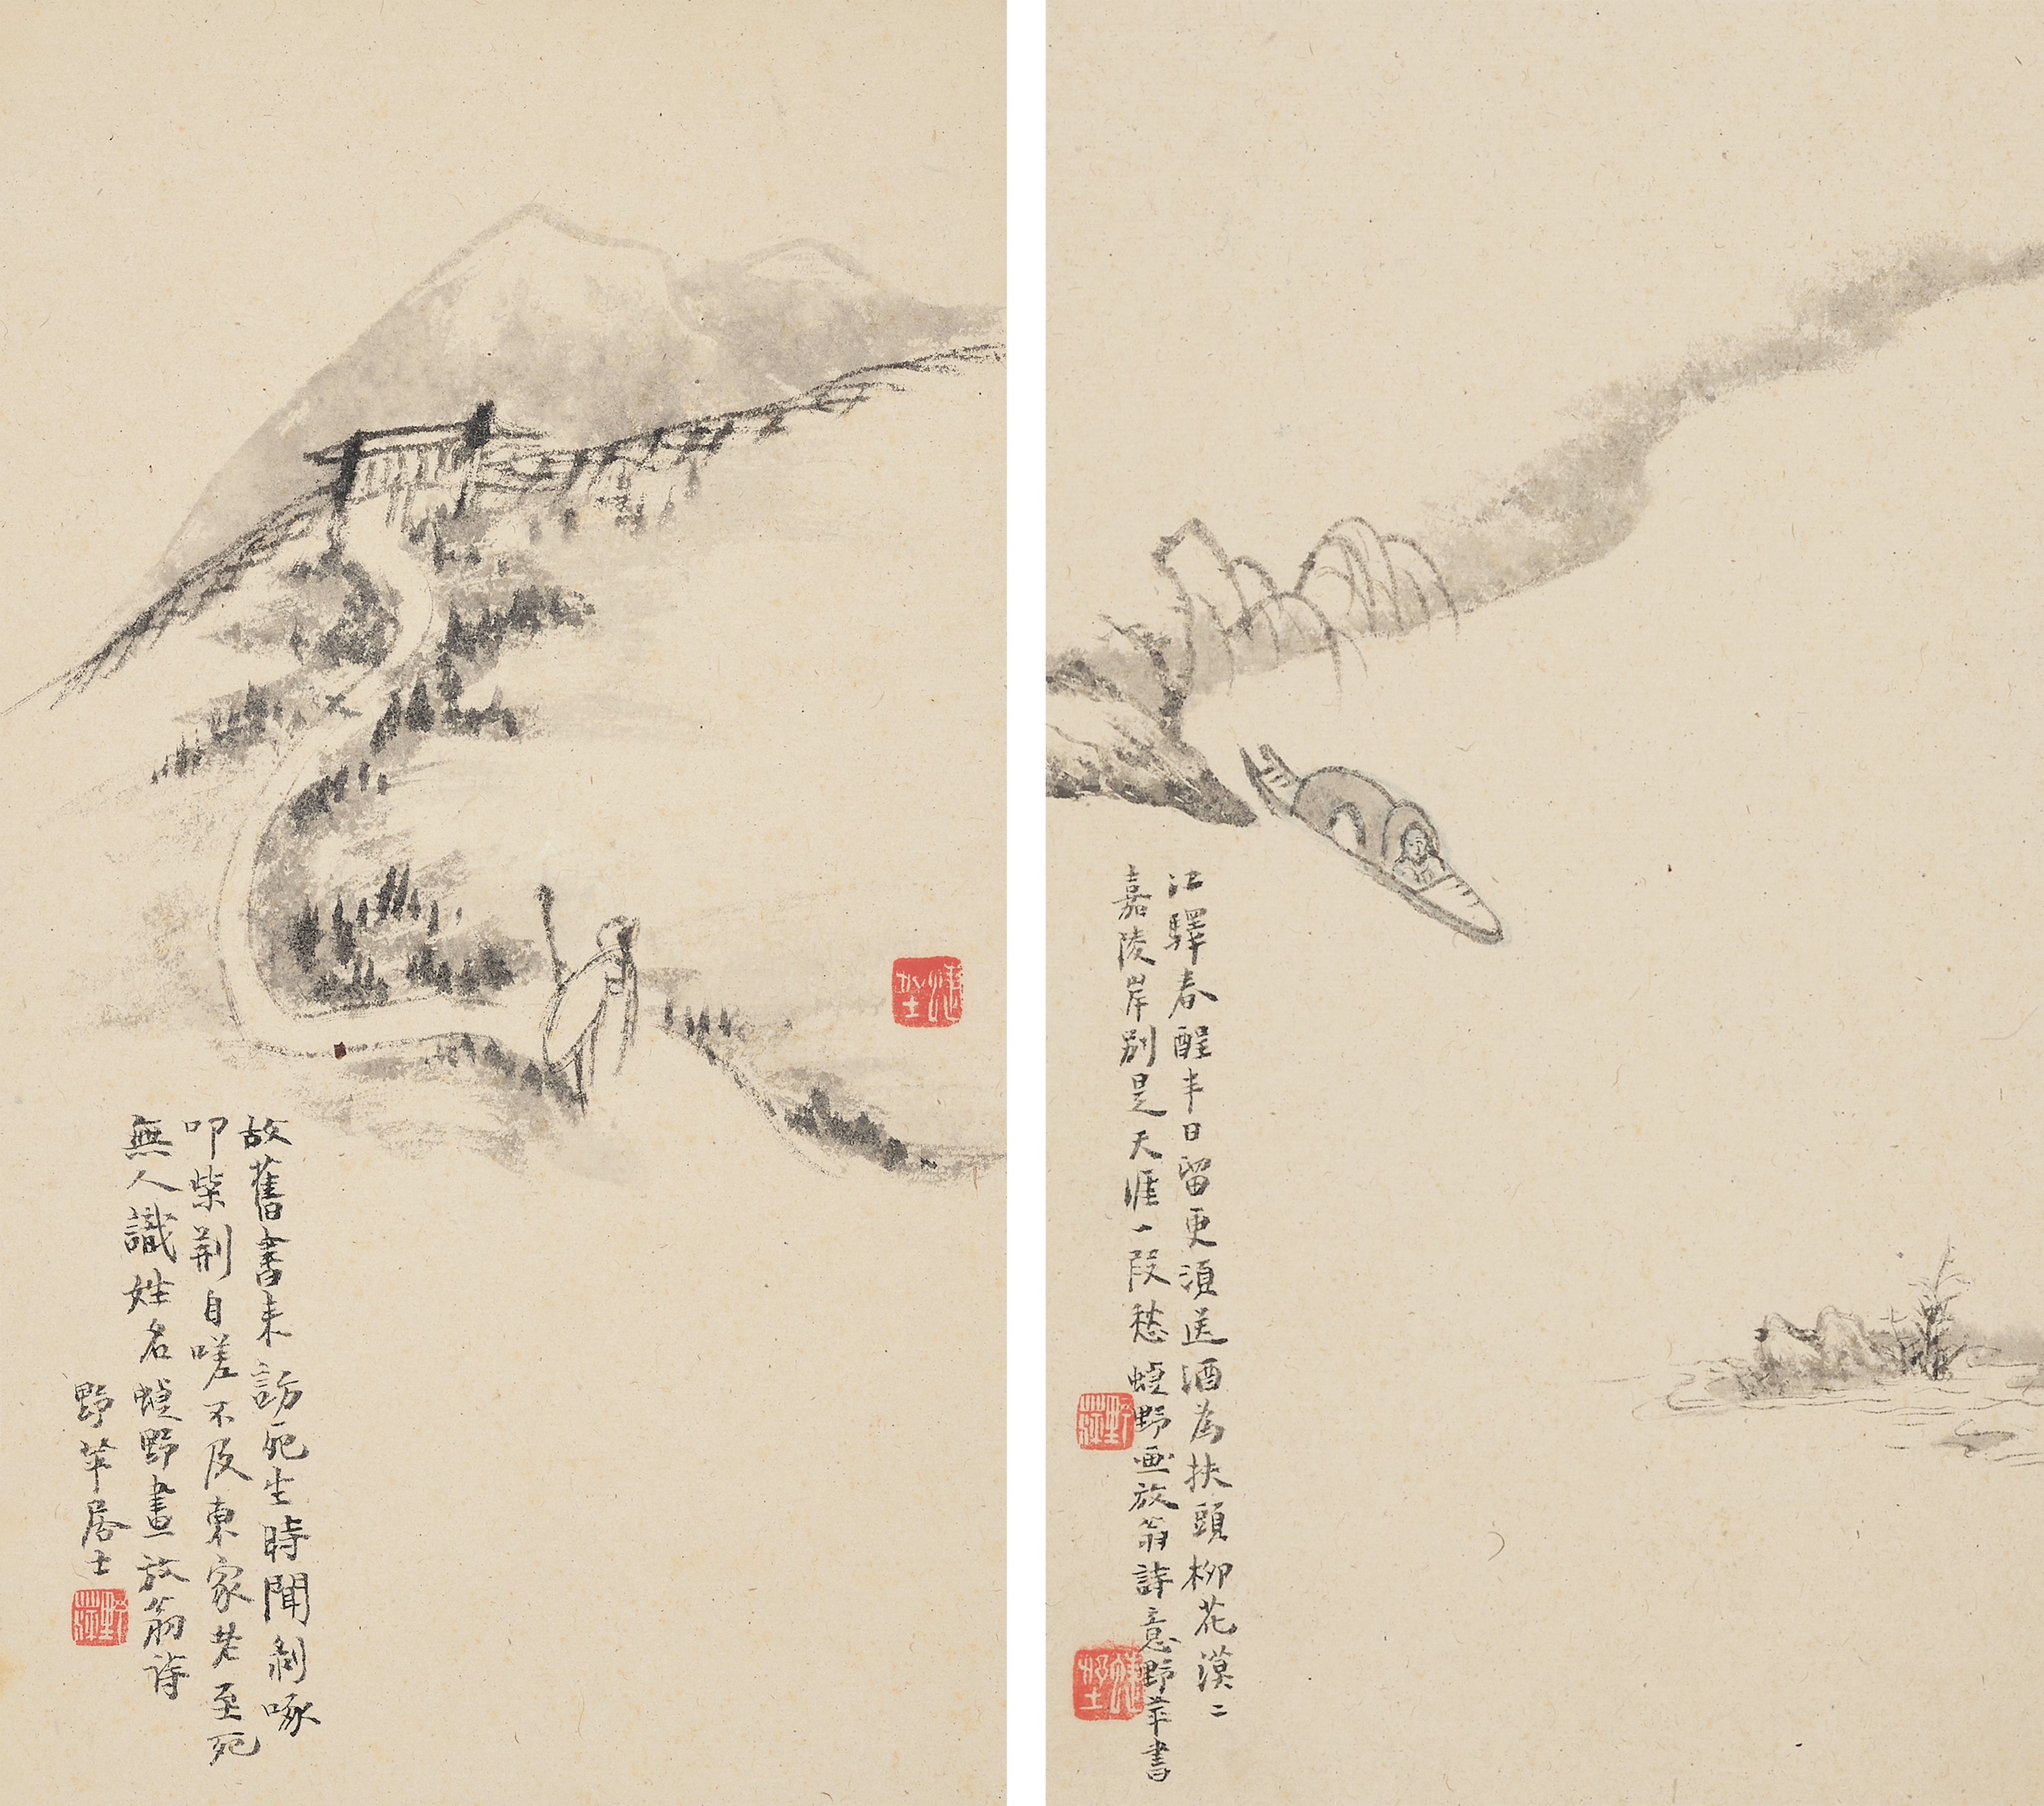 江驛春酲半日留更須送酒為扶頭柳花漠二
嘉陵岸別是天涯一段愁蜨野画放翁詩意野苹書
故舊書来訪死生時聞剝啄
叩柴荆自嗟不及東家老至死
無人識姓名蜨野畫放翁詩
野苹居士